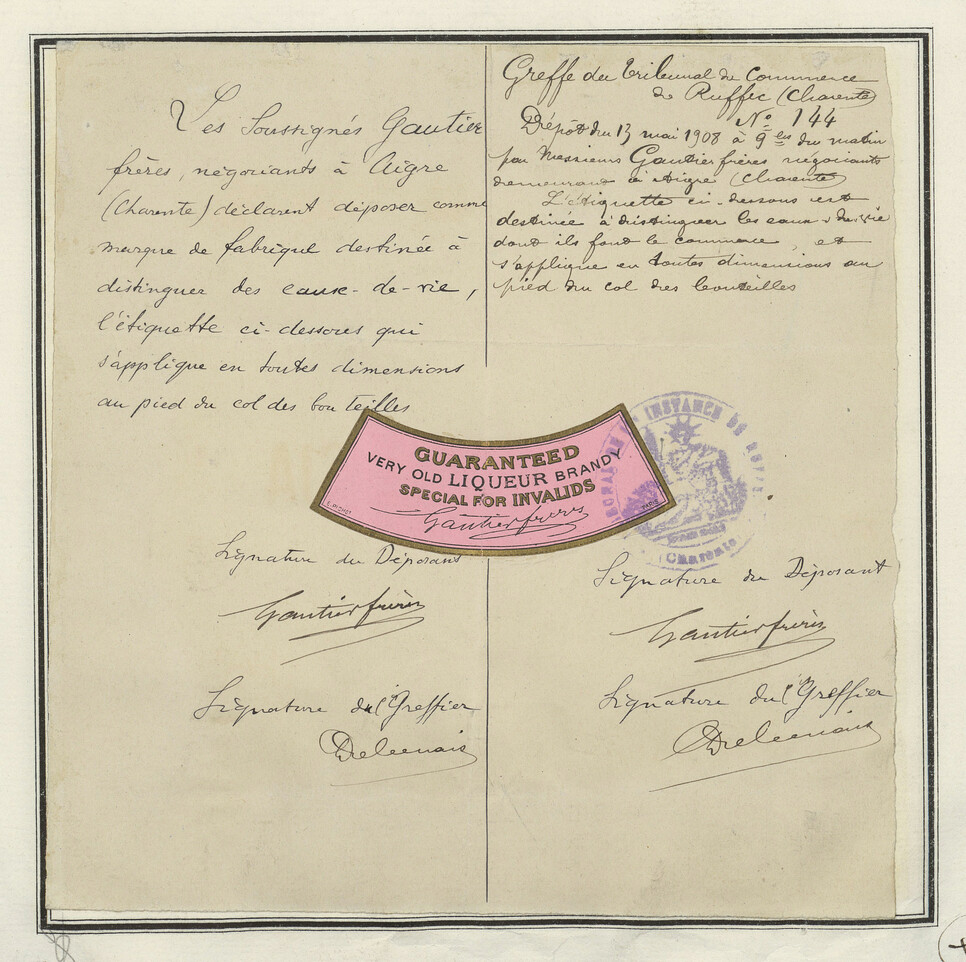 Les Soussignés Gautier
frères, négociants à Aigre
(Charente) déclarent déposer comme
marque de fabrique destinée à
distinguer des eaux-de-vie,
l'étiquette ci-dessous qui
s'applique en toutes dimensions
au pied du col des bouteilles
Greffe du Tribunal de Commerce
de Ruffec (Charente)
No 144
Dépôt du 13 mai 1908 à 9 hes du matin
par Messieurs Gautier frères négociants
demeurant à Aigre (Charente)
L'étiquette ci-dessous est
destinée à distinguer les eaux-de-vie
dont ils font le commerce, et
s'applique en toutes dimensions au
pied du col des bouteilles
GUARANTEED
VERY OLD LIQUEUR BRANDY
SPECIAL FOR INVALIDS
Gautier frères
INSTANCE DE RUFFEC
Charente
Signature du Déposant
Gautier frères
Signature du Greffier
Signature du Déposant
Gautier frères
Signature du Greffier